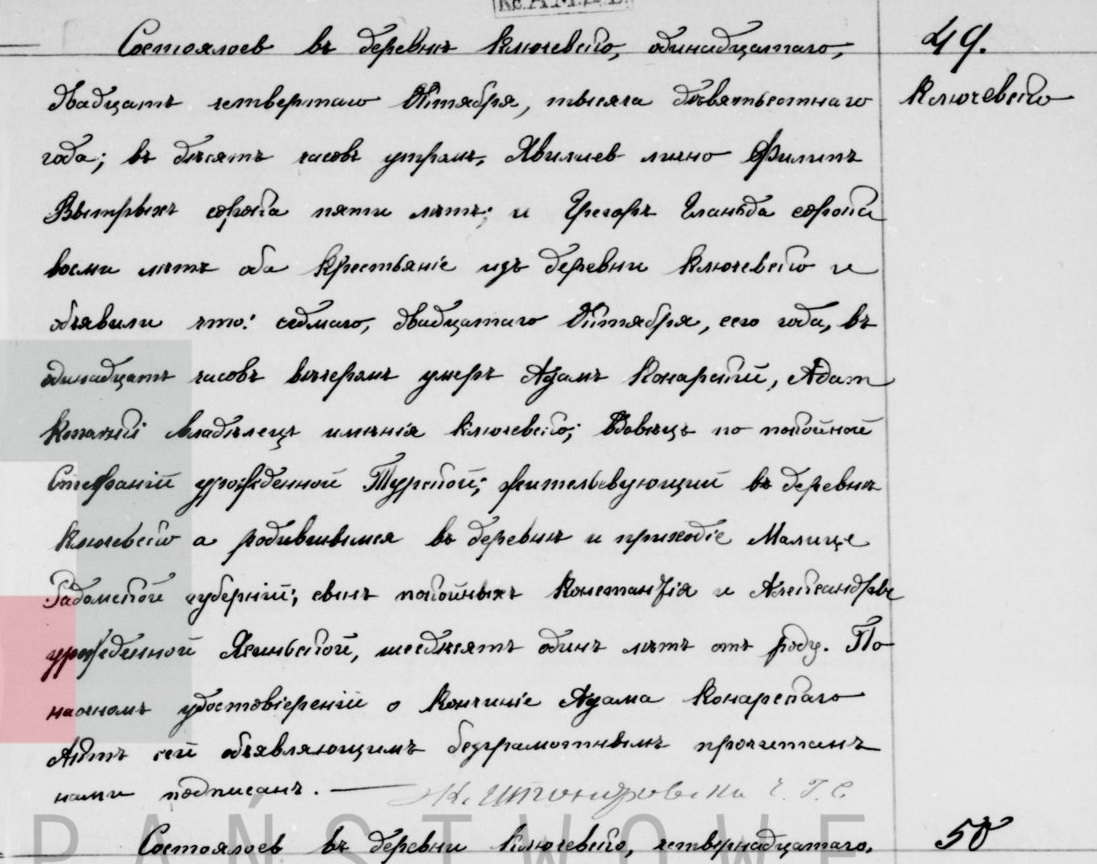 Состоялось въ деревнѣ Ключевско, одинадцатаго,
49.
двадцать четвертаго Октября, тысяча девятьсотнаго
Ключевско
года; въ десять часовъ утромъ. Явились лично Филипъ
Выгрыхъ сорока пяти лѣтъ; и Грегоръ сорока
восми лѣтъ оба крестьяніе изъ деревни Ключевско и
объявили что: седмаго, двадцатаго Октября, сего года, въ
одинадцать часовъ вечеромъ умеръ Адамъ Конарскій, Адам
Конарскій владѣлецъ имѣнія Ключевско; вдовецъ по покойной
Стефаніи урожденной Турской; жительсвующій въ деревнѣ
Ключевско а родившымся въ деревнѣ и приходіе Малице
Радомской губерніи; сынъ покойныхъ Констанція и Александры
урожденной Ясиньской, шесдѣсятъ одинъ лѣтъ отъ роду. По
наочномъ удостовіереніи о кончиніе Адама Конарскаго
Актъ сей объявляющимъ безграмотнымъ прочитанъ
нами подписанъ.
PAŃSTWOWE
Состоялось въ деревни Ключевско, четвернадцатаго,
50